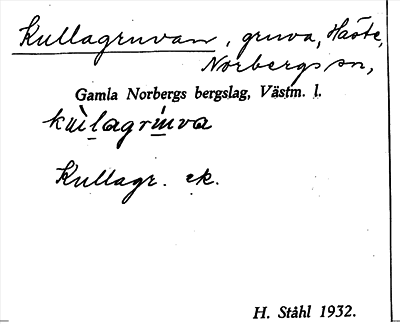 Kullagruvan, gruva, Håste,
Norbergs sn,
Gamla Norbergs bergslag, Västm. l.
kùlagrúva
Kullagr. ek.
H. Ståhl 1932.